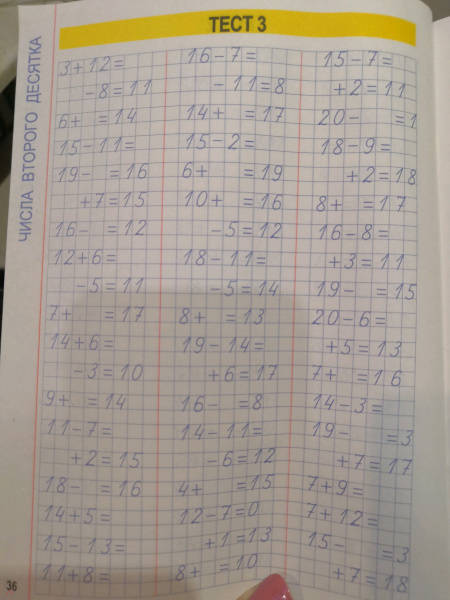 ТЕСТ 3
ЧИСЛА ВТОРОГО ДЕСЯТКА
3+12=
-8=11
6+ =14
15-11=
19- =16
+7=15
16- =12
12+6=
-5=11
7+ =17
14+6=
-3=10
9+ =14
11-7=
+2=15
18- =16
14+5=
15-13=
11+8=
16-7=
-11=8
14+ =17
15-2=
6+ =19
10+ =16
-5=12
18-11=
-5=14
8+ =13
19-14=
+6=17
16- =8
14-11=
-6=12
4+ =15
12-7=0
+1=13
8+ =10
15-7=
+2=11
20- =1
18-9=
+2=18
8+ =17
16-8=
+3=11
19- =15
20-6=
+5=13
7+ =16
14-3=
19- =3
+7=17
7+9=
7+12=
15- =3
+7=18
36